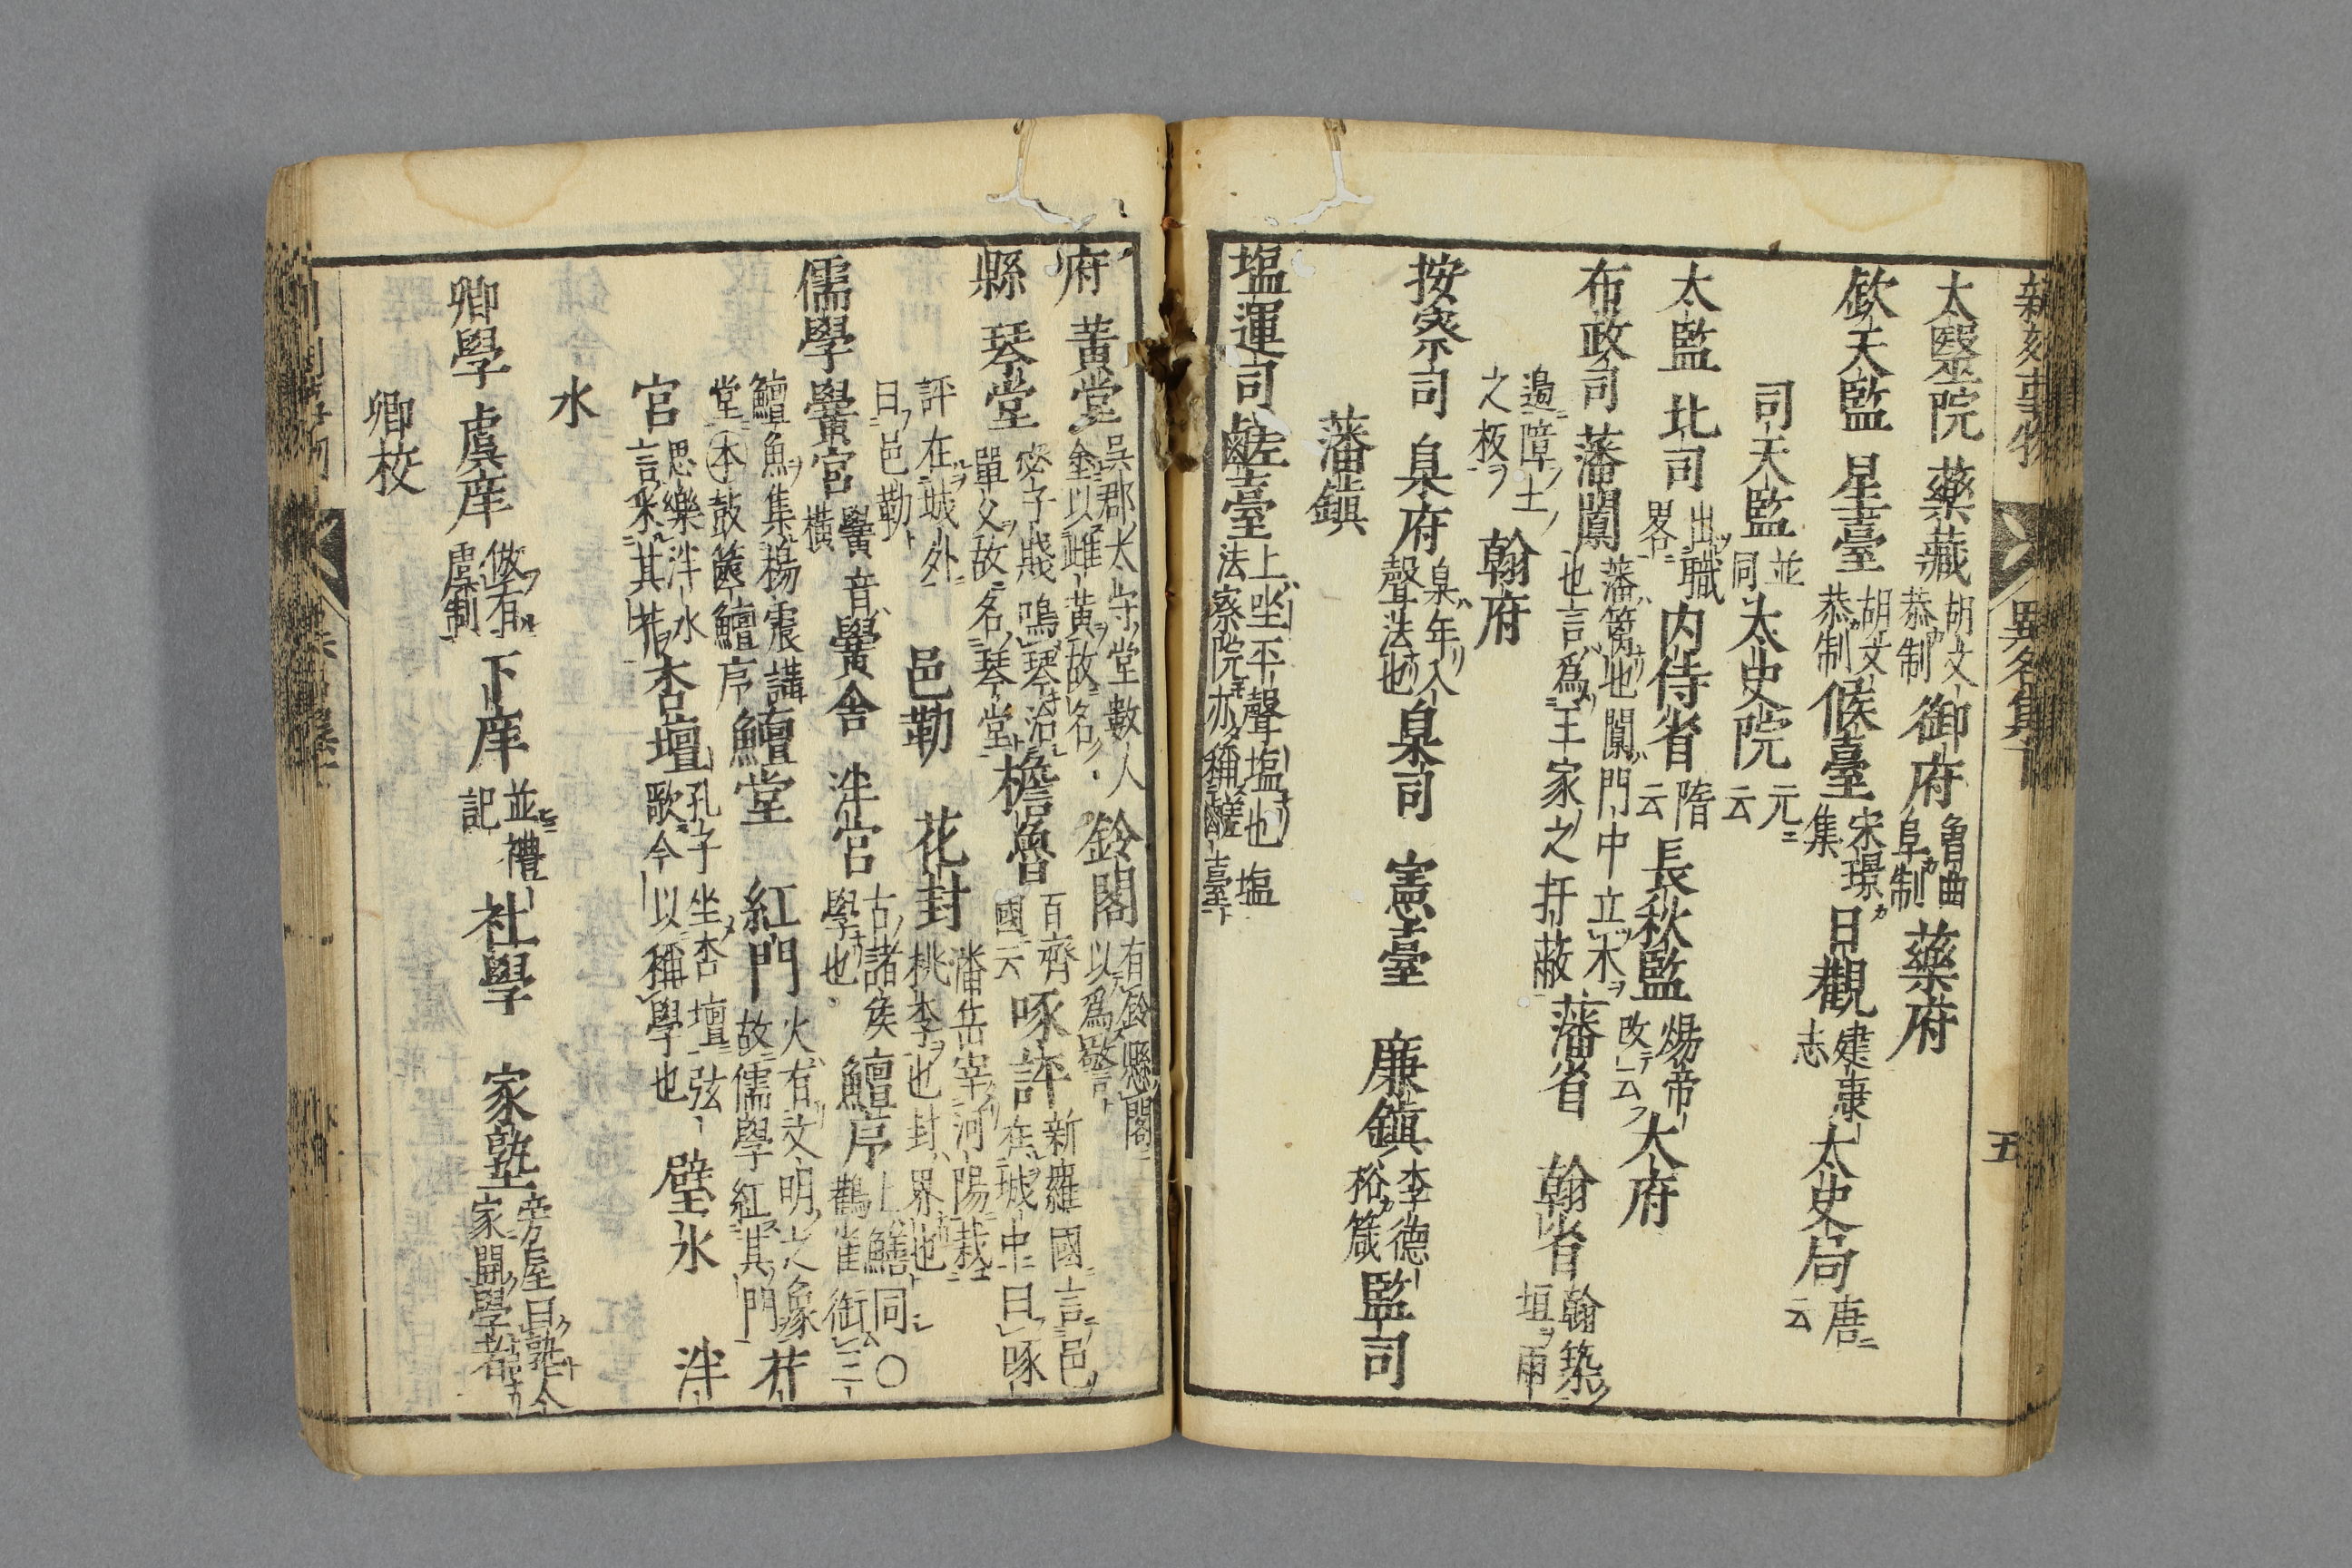 太毉院 藥藏 胡文恭制 御府 魯曲阜制 藥府
欽天監 星臺 胡文恭制 候臺 宋璟集 日觀 建康志 太史局 唐云
司天監 並同 太史院 元云
太監 北司 出職畧 内侍省 隋云 長秋監 煬帝改云 太府
布政司 藩閫 藩籬也閫門中立木也言爲王家之扞蔽 藩省 翰省 翰築垣兩
邉障土之板 翰府
按察司 臬府 臬年入聲法也 臬司 憲臺 廉鎮 李德裕箴 監司
藩鎮
塩運司 鹺臺 上坐平聲塩也塩法察院亦稱鹺臺
府 黃堂 吳郡太守堂數人塗以雌黃故名 鈴閣 有鈴懸閣以爲警
縣 琴堂 宓子賤鳴琴治單父故名琴堂 檐魯 百齊國云 啄評 新羅國言邑在城中曰啄
評在城外曰邑勒 邑勒 花封 潘岳宰河陽栽桃李也封界也
儒學 黌宮 黌音橫 黌舍 泮宮 古諸侯學也 鱣序 上鱔同〇鸛雀銜三
鱣魚集楊震講堂㊍鼓篋鱣序 鱣堂 紅門 火有文明之象故儒學紅其門 芹
官 思樂泮水言采其芹 杏壇 孔子坐杏壇弦歌今以稱學也 壁水 泮
水
卿學 虞庠 倣有虞制 下庠 並禮記 社學 家塾 旁屋曰塾今家開學者
卿校
五